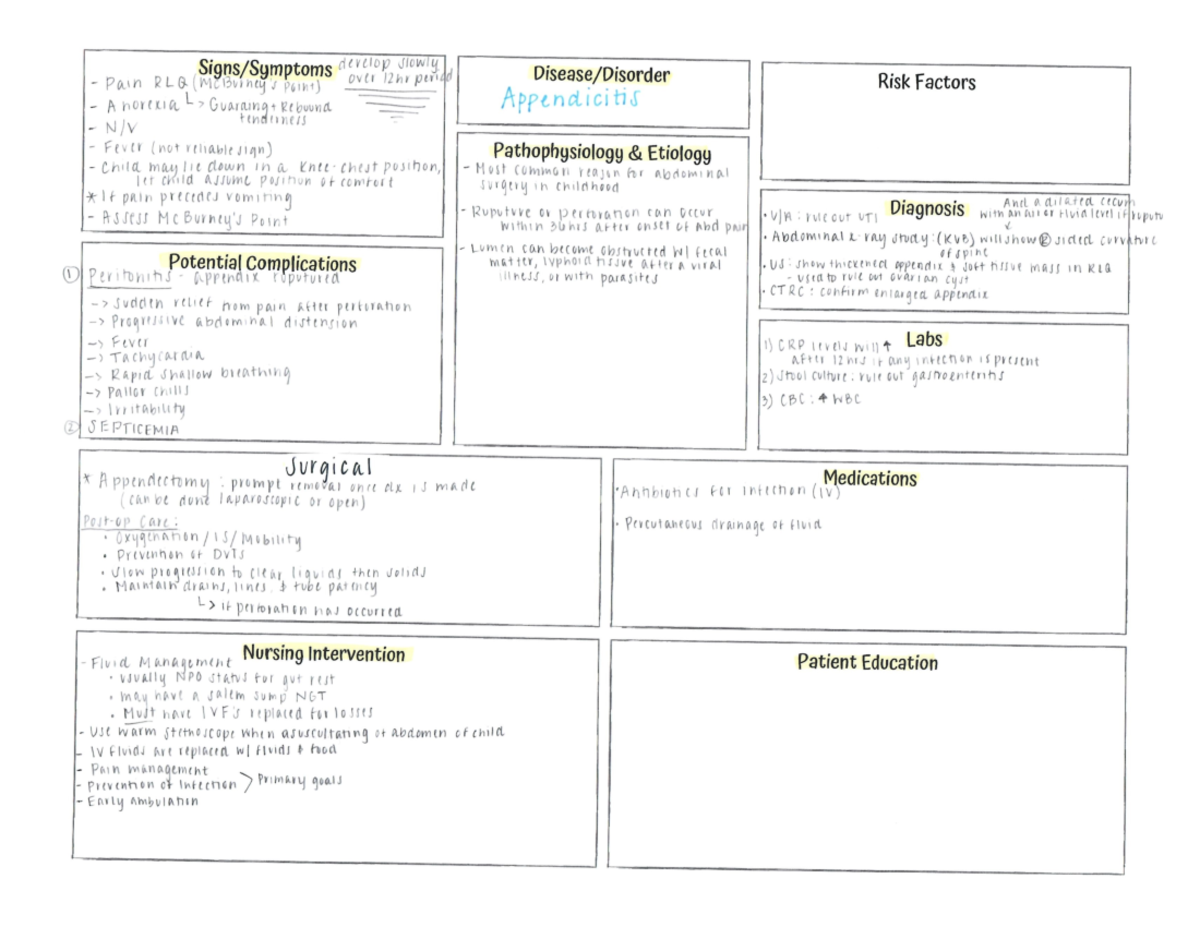 Signs/Symptoms
develop slowly
over 12hr period
- Pain RLQ (McBurney's Point)
- Anorexia ↳ Guarding + Rebound
tenderness
- N/V
- Fever (not reliable sign)
- Child may lie down in a knee-chest position,
let child assume position of comfort
* If pain precedes vomiting
- Assess McBurney's Point
Potential Complications
① Peritonitis - appendix ruputured
-> Sudden relief from pain after perforation
-> Progressive abdominal distension
-> Fever
-> Tachycardia
-> Rapid shallow breathing
-> Pallor chills
-> Irritability
② SEPTICEMIA
Disease/Disorder
Appendicitis
Pathophysiology & Etiology
- Most common reason for abdominal
surgery in childhood
- Ruputure or perforation can occur
within 36hrs after onset of abd pain
- Lumen can become obstructed w/ fecal
matter, lyphoid tissue after a viral
illness, or with parasites
Risk Factors
Diagnosis
And a dilated cecum
with an air or fluid level if ruputu
• U/A: rule out UTI
• Abdominal x-ray study: (KUB) will show Ⓡ sided curvature
of spine
• US: show thickened appendix & soft tissue mass in RLQ
- used to rule out ovarian cyst
• CTRC: confirm enlarged appendix
Labs
1) CRP levels will ↑
after 12hrs if any infection is present
2) Stool culture: rule out gastroenteritis
3) CBC: ↑ WBC
Surgical
* Appendectomy: prompt removal once dx is made
(can be done laparoscopic or open)
Post-op Care:
• Oxygenation/IS/Mobility
• Prevention of DVTs
• Slow progression to clear liquids then solids
• Maintain drains, lines, & tube patency
↳ if perforation has occurred
Medications
• Antibiotics for infection (IV)
• Percutaneous drainage of fluid
Nursing Intervention
- Fluid Management
• usually NPO status for gut rest
• may have a salem sump NGT
• Must have IVF's replaced for losses
- Use warm stethoscope when asuscultating of abdomen of child
- IV fluids are replaced w/ fluids & food
- Pain management
- Prevention of Infection > Primary goals
- Early ambulation
Patient Education